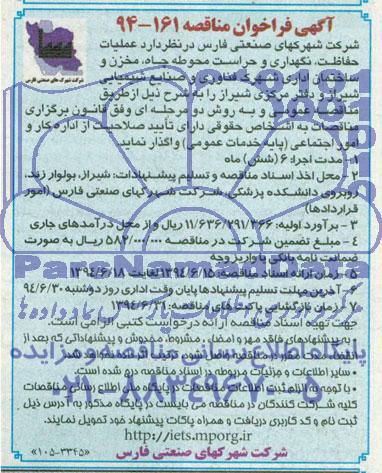 آگهی فراخوان مناقصه ۱۶۱-۹۴
شرکت شهرکهای صنعتی فارس در نظر دارد عملیات
حفاظت، نگهداری و حراست محوطه چاه، مخزن و
ساختمان اداری شهرک فناوری و صنایع شیمیایی
شیراز و دفتر مرکزی شیراز را به شرح ذیل از طریق
مناقصه عمومی و به روش دو مرحله ای وفق قانون برگزاری
مناقصات به اشخاص حقوقی دارای تأیید صلاحیت از اداره کار و
امور اجتماعی (پایه خدمات عمومی) واگذار نماید.
۱- مدت اجرا: ۶ (شش) ماه
۲- محل اخذ اسناد مناقصه و تسلیم پیشنهادات: شیراز، بولوار زند،
روبروی دانشکده پزشکی، شرکت شهرکهای صنعتی فارس (امور
قراردادها)
۳- برآورد اولیه: ۱۱/۶۳۶/۲۹۱/۳۶۶ ریال و از محل درآمدهای جاری
۴- مبلغ تضمین شرکت در مناقصه ۵۸۲/۰۰۰/۰۰۰ ریال به صورت
ضمانت نامه بانکی یا واریز وجه
۵- زمان ارائه اسناد مناقصه: ۱۳۹۴/۶/۱۵ لغایت ۱۳۹۴/۶/۱۸
۶- آخرین مهلت تسلیم پیشنهادها پایان وقت اداری روز دوشنبه ۹۴/۶/۳۰
۷- زمان بازگشایی پاکت های مناقصه: ۱۳۹۴/۶/۳۱
جهت تهیه اسناد مناقصه ارائه درخواست کتبی الزامی است.
- به پیشنهادهای فاقد مهر و امضاء، مشروط، مخدوش و پیشنهاداتی که بعد از
- سایر اطلاعات و جزئیات مربوطه در اسناد مناقصه درج شده است.
- با توجه به الزام ثبت اطلاعات مناقصات در پایگاه ملی اطلاع رسانی مناقصات
کلیه شرکت کنندگان در مناقصه می بایست در پایگاه مذکور به آدرس ذیل
ثبت نام و کد کاربری دریافت و همراه پاکات پیشنهاد خود تحویل نمایند.
http://iets.mporg.ir
شرکت شهرکهای صنعتی فارس
«۱۰۵-۳۳۴۵»
شرکت شهرک های صنعتی فارس
ParsNamadData
۰۲۱-۸۸۳۴۹۶۷۰-۵